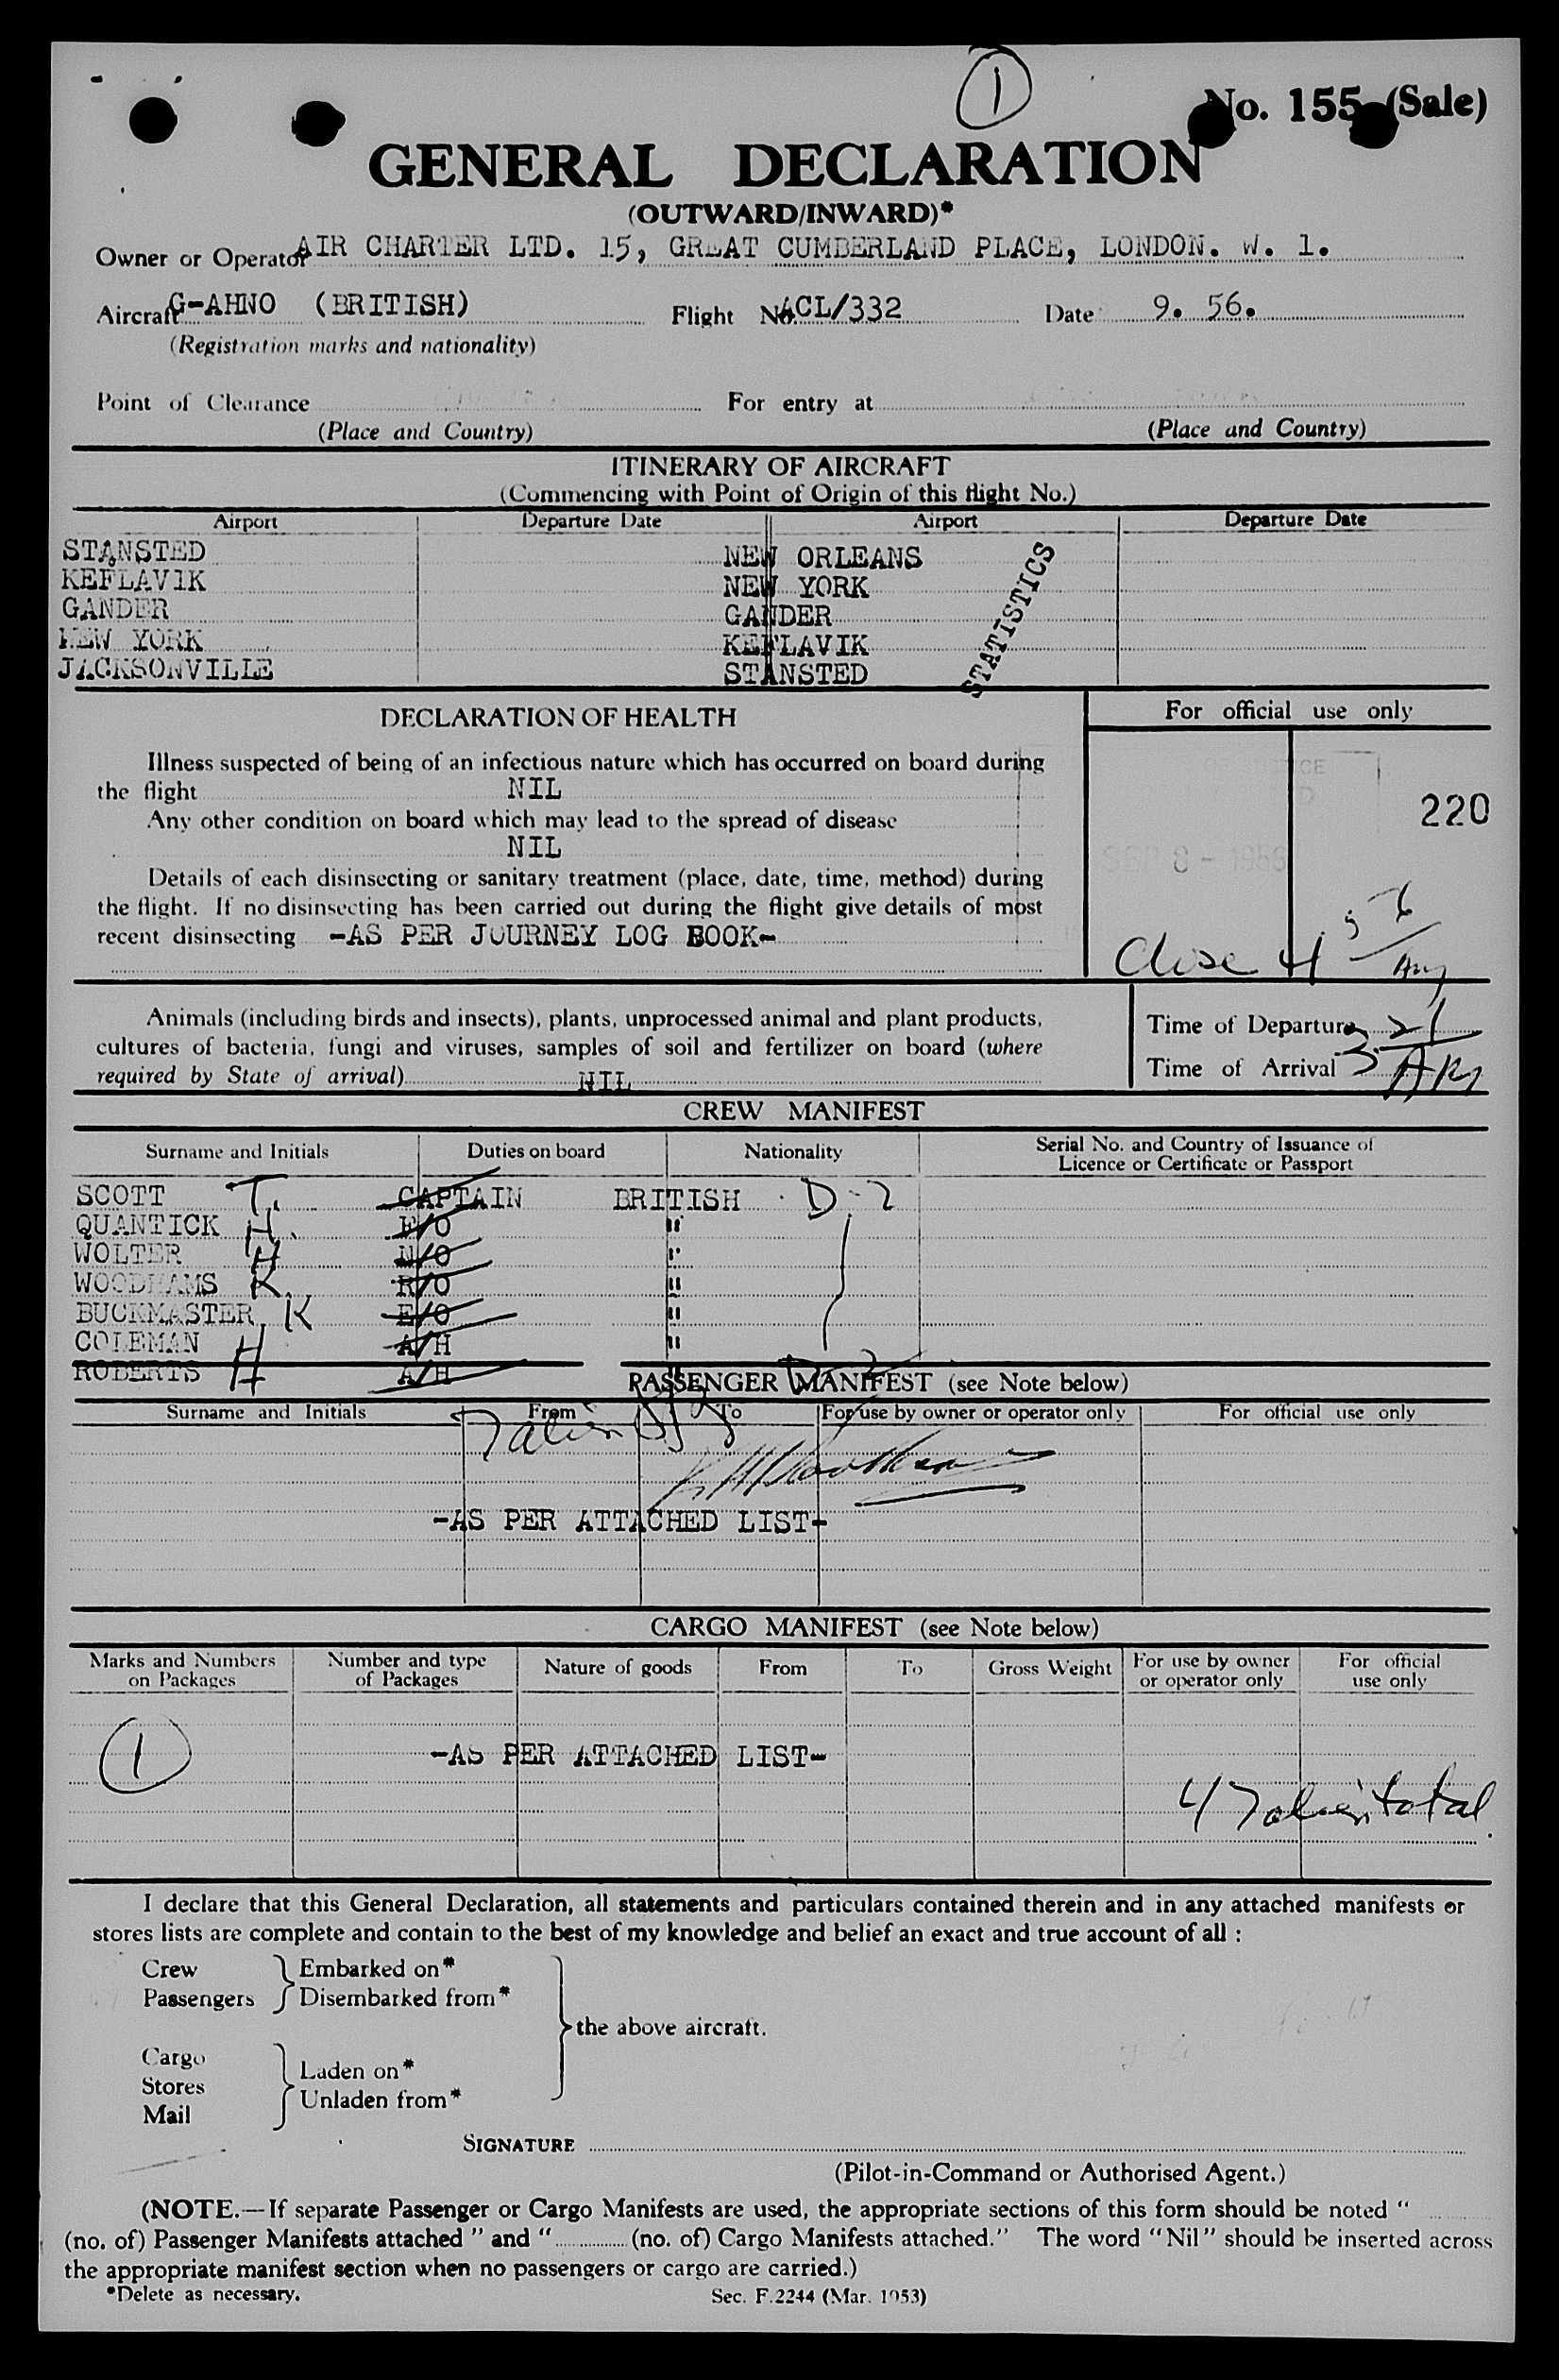 1
No. 155 (Sale)
GENERAL DECLARATION
(OUTWARD/INWARD)*
Owner or Operator AIR CHARTER LTD. 15, GREAT CUMBERLAND PLACE, LONDON. W. 1.
Aircraft G-AHNO (BRITISH) Flight No. ACL/332 Date 9. 56.
(Registration marks and nationality)
Point of Clearance For entry at
(Place and Country) (Place and Country)
ITINERARY OF AIRCRAFT
(Commencing with Point of Origin of this flight No.)
Airport Departure Date Airport Departure Date
STANSTED NEW ORLEANS
KEFLAVIK NEW YORK
GANDER GANDER
NEW YORK KEFLAVIK
JACKSONVILLE STANSTED
STATISTICS
DECLARATION OF HEALTH For official use only
Illness suspected of being of an infectious nature which has occurred on board during
the flight NIL
220
Any other condition on board which may lead to the spread of disease
NIL
SEP 8 - 1956
Details of each disinsecting or sanitary treatment (place, date, time, method) during
the flight. If no disinsecting has been carried out during the flight give details of most
recent disinsecting -AS PER JOURNEY LOG BOOK-
Close 4
Animals (including birds and insects), plants, unprocessed animal and plant products,
cultures of bacteria, fungi and viruses, samples of soil and fertilizer on board (where
required by State of arrival) NIL
Time of Departure
Time of Arrival
CREW MANIFEST
Surname and Initials Duties on board Nationality Serial No. and Country of Issuance of
Licence or Certificate or Passport
SCOTT T. CAPTAIN BRITISH D-2
QUANTICK H. F/O "
WOLTER H N/O "
WOODHAMS K. R/O "
BUCKMASTER K E/O "
COLEMAN A/H "
ROBERTS H A/H "
PASSENGER MANIFEST (see Note below)
Surname and Initials From To For use by owner or operator only For official use only
-AS PER ATTACHED LIST-
CARGO MANIFEST (see Note below)
Marks and Numbers on Packages Number and type of Packages Nature of goods From To Gross Weight For use by owner or operator only For official use only
1
-AS PER ATTACHED LIST-
total
I declare that this General Declaration, all statements and particulars contained therein and in any attached manifests or
stores lists are complete and contain to the best of my knowledge and belief an exact and true account of all :
Crew Embarked on*
Passengers Disembarked from*
the above aircraft.
Cargo
Laden on*
Stores
Unladen from*
Mail
SIGNATURE
(Pilot-in-Command or Authorised Agent.)
(NOTE.—If separate Passenger or Cargo Manifests are used, the appropriate sections of this form should be noted "
(no. of) Passenger Manifests attached " and " (no. of) Cargo Manifests attached." The word "Nil" should be inserted across
the appropriate manifest section when no passengers or cargo are carried.)
*Delete as necessary. Sec. F.2244 (Mar. 1953)